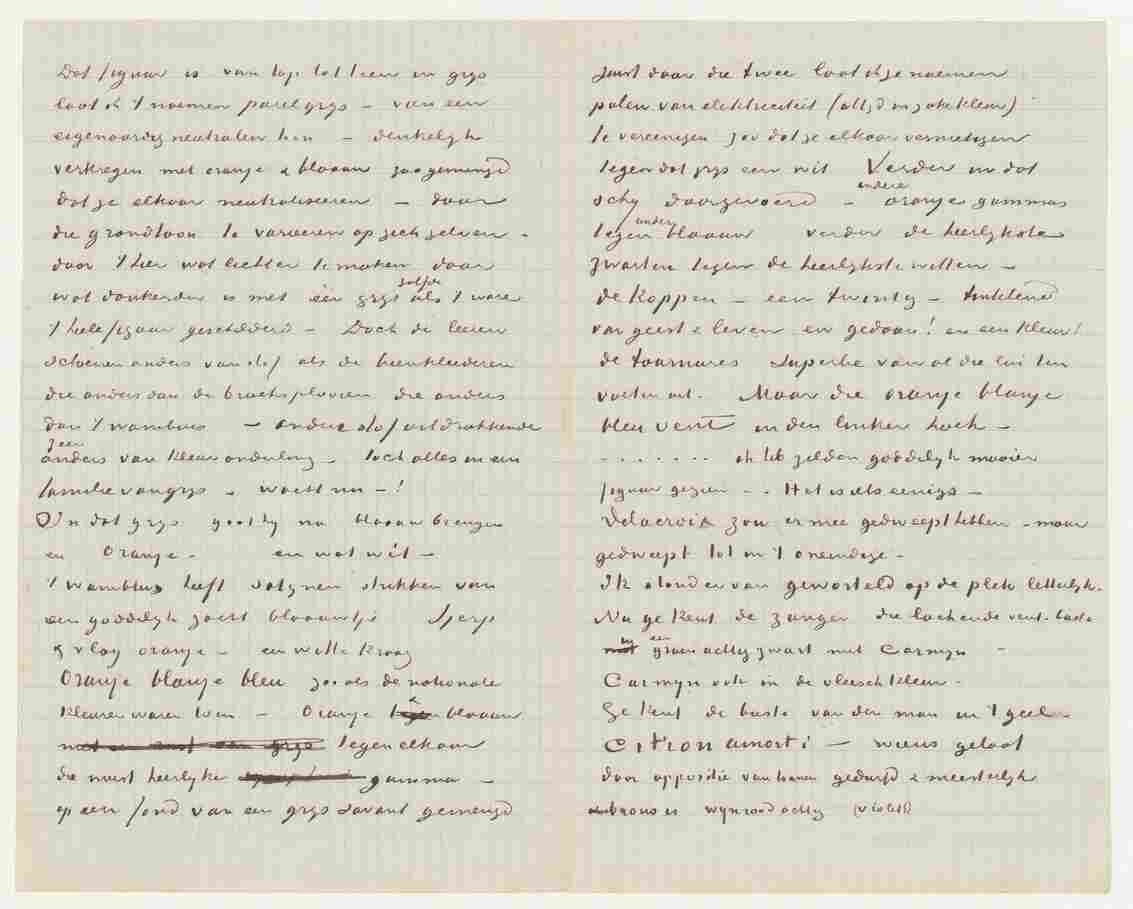 Dat figuur is van top tot teen in grijs
laat ik 't noemen parelgrijs – van een
eigenaardig neutralen toon – denkelijk
verkregen met oranje & blaauw zoo gemengd
dat ze elkaar neutraliseeren – door
die grondtoon te varieeren op zich zelven –
door 't hier wat lichter te maken daar
wat donkerder is met een grijs zelfde als 't ware
't heele figuur geschilderd – Doch de leeren
schoenen anders van stof als de beenkleederen
die anders dan de broeksplooien die anders
dan 't wambuis – andere stof uitdrukkende
zeer
anders van kleur onderling – toch alles in een
familie van grijs – wacht nu – !
In dat grijs gaat hij nu blaauw brengen
en Oranje – en wat wit –
't wambuis heeft satijnen strikken van
een goddelijk zacht blaauwtje Sjerp
& vlag oranje – een witte kraag
Oranje blanje bleu zooals de nationale
kleuren waren toen – Oranje & blaauw
tegen elkaar
die meest heerlijke gamma –
op een fond van een grijs savant gemengd
juist door die twee laat ik ze noemen
polen van elektriciteit (altijd in zake kleur)
te vereenigen zoo dat ze elkaar vernietigen
tegen dat grijs een wit Verder in dat
andere
schij doorgevoerd – oranje gammas
ander
tegen blaauw verder de heerlijkste
zwarten tegen de heerlijkste witten –
de Koppen – een twintig – tintelend
van geest & leven en gedaan! en een kleur!
de tournures superbe van al die lui ten
voeten uit. Maar die oranje blanje
bleu vent in den linker hoek –
. . . . . . . ik heb zelden goddelijk mooier
figuur gezien – . Het is iets eenigs –
Delacroix zou ermee gedweept hebben – maar
gedweept tot in 't oneindige –
Ik stond ervan geworteld op de plek letterlijk.
Nu ge kent de zanger die lachende vent – buste
in een
groenachtig zwart met Carmijn –
Carmijn ook in de vleeschkleur –
Ge kent de buste van den man in 't geel
Citron amorti – wiens gelaat
door oppositie van tonen gedurfd & meesterlijk
brons is wijnroodachtig (violet?)